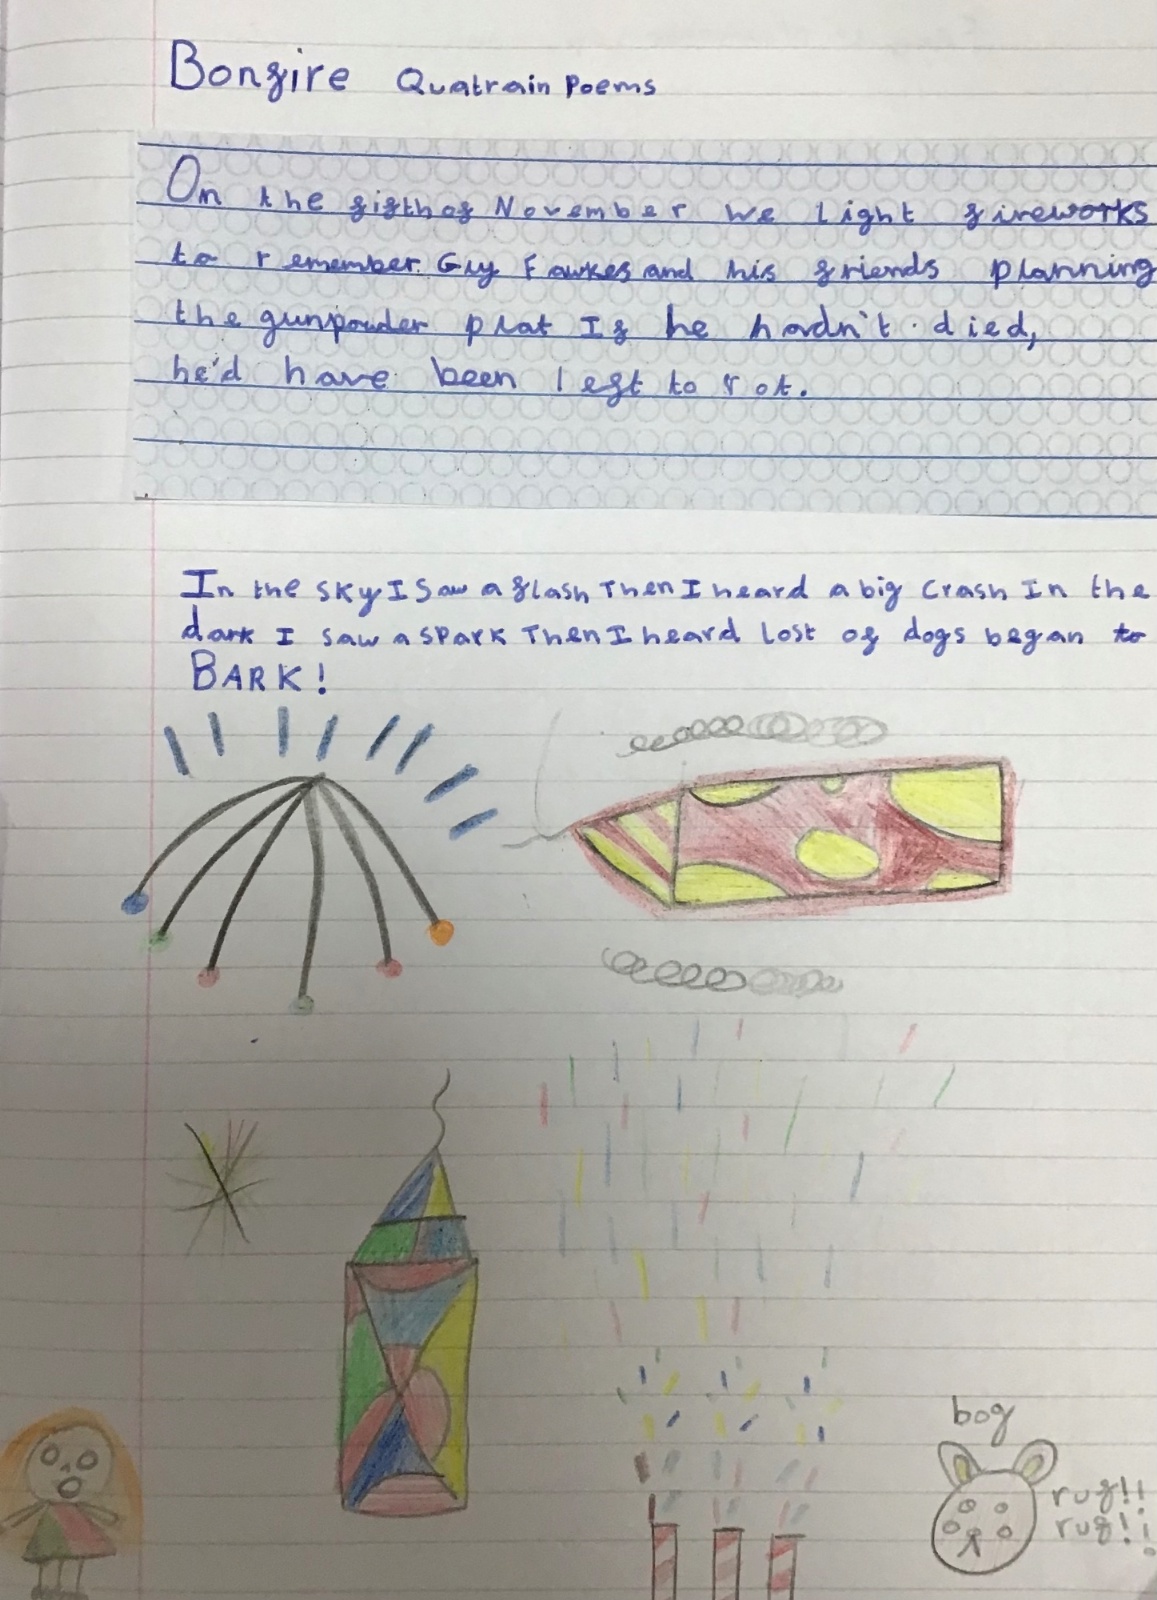 Bonfire Quatrain Poems
On the fifth of November we light fireworks
to remember Guy Fawkes and his friends planning
the gunpouder plot If he hadn't died,
he'd have been left to rot.
In the sky I saw a flash Then I heard a big crash In the
dark I saw a spark Then I heard lost of dogs began to
BARK!
bog
ruf!!
ruf!!